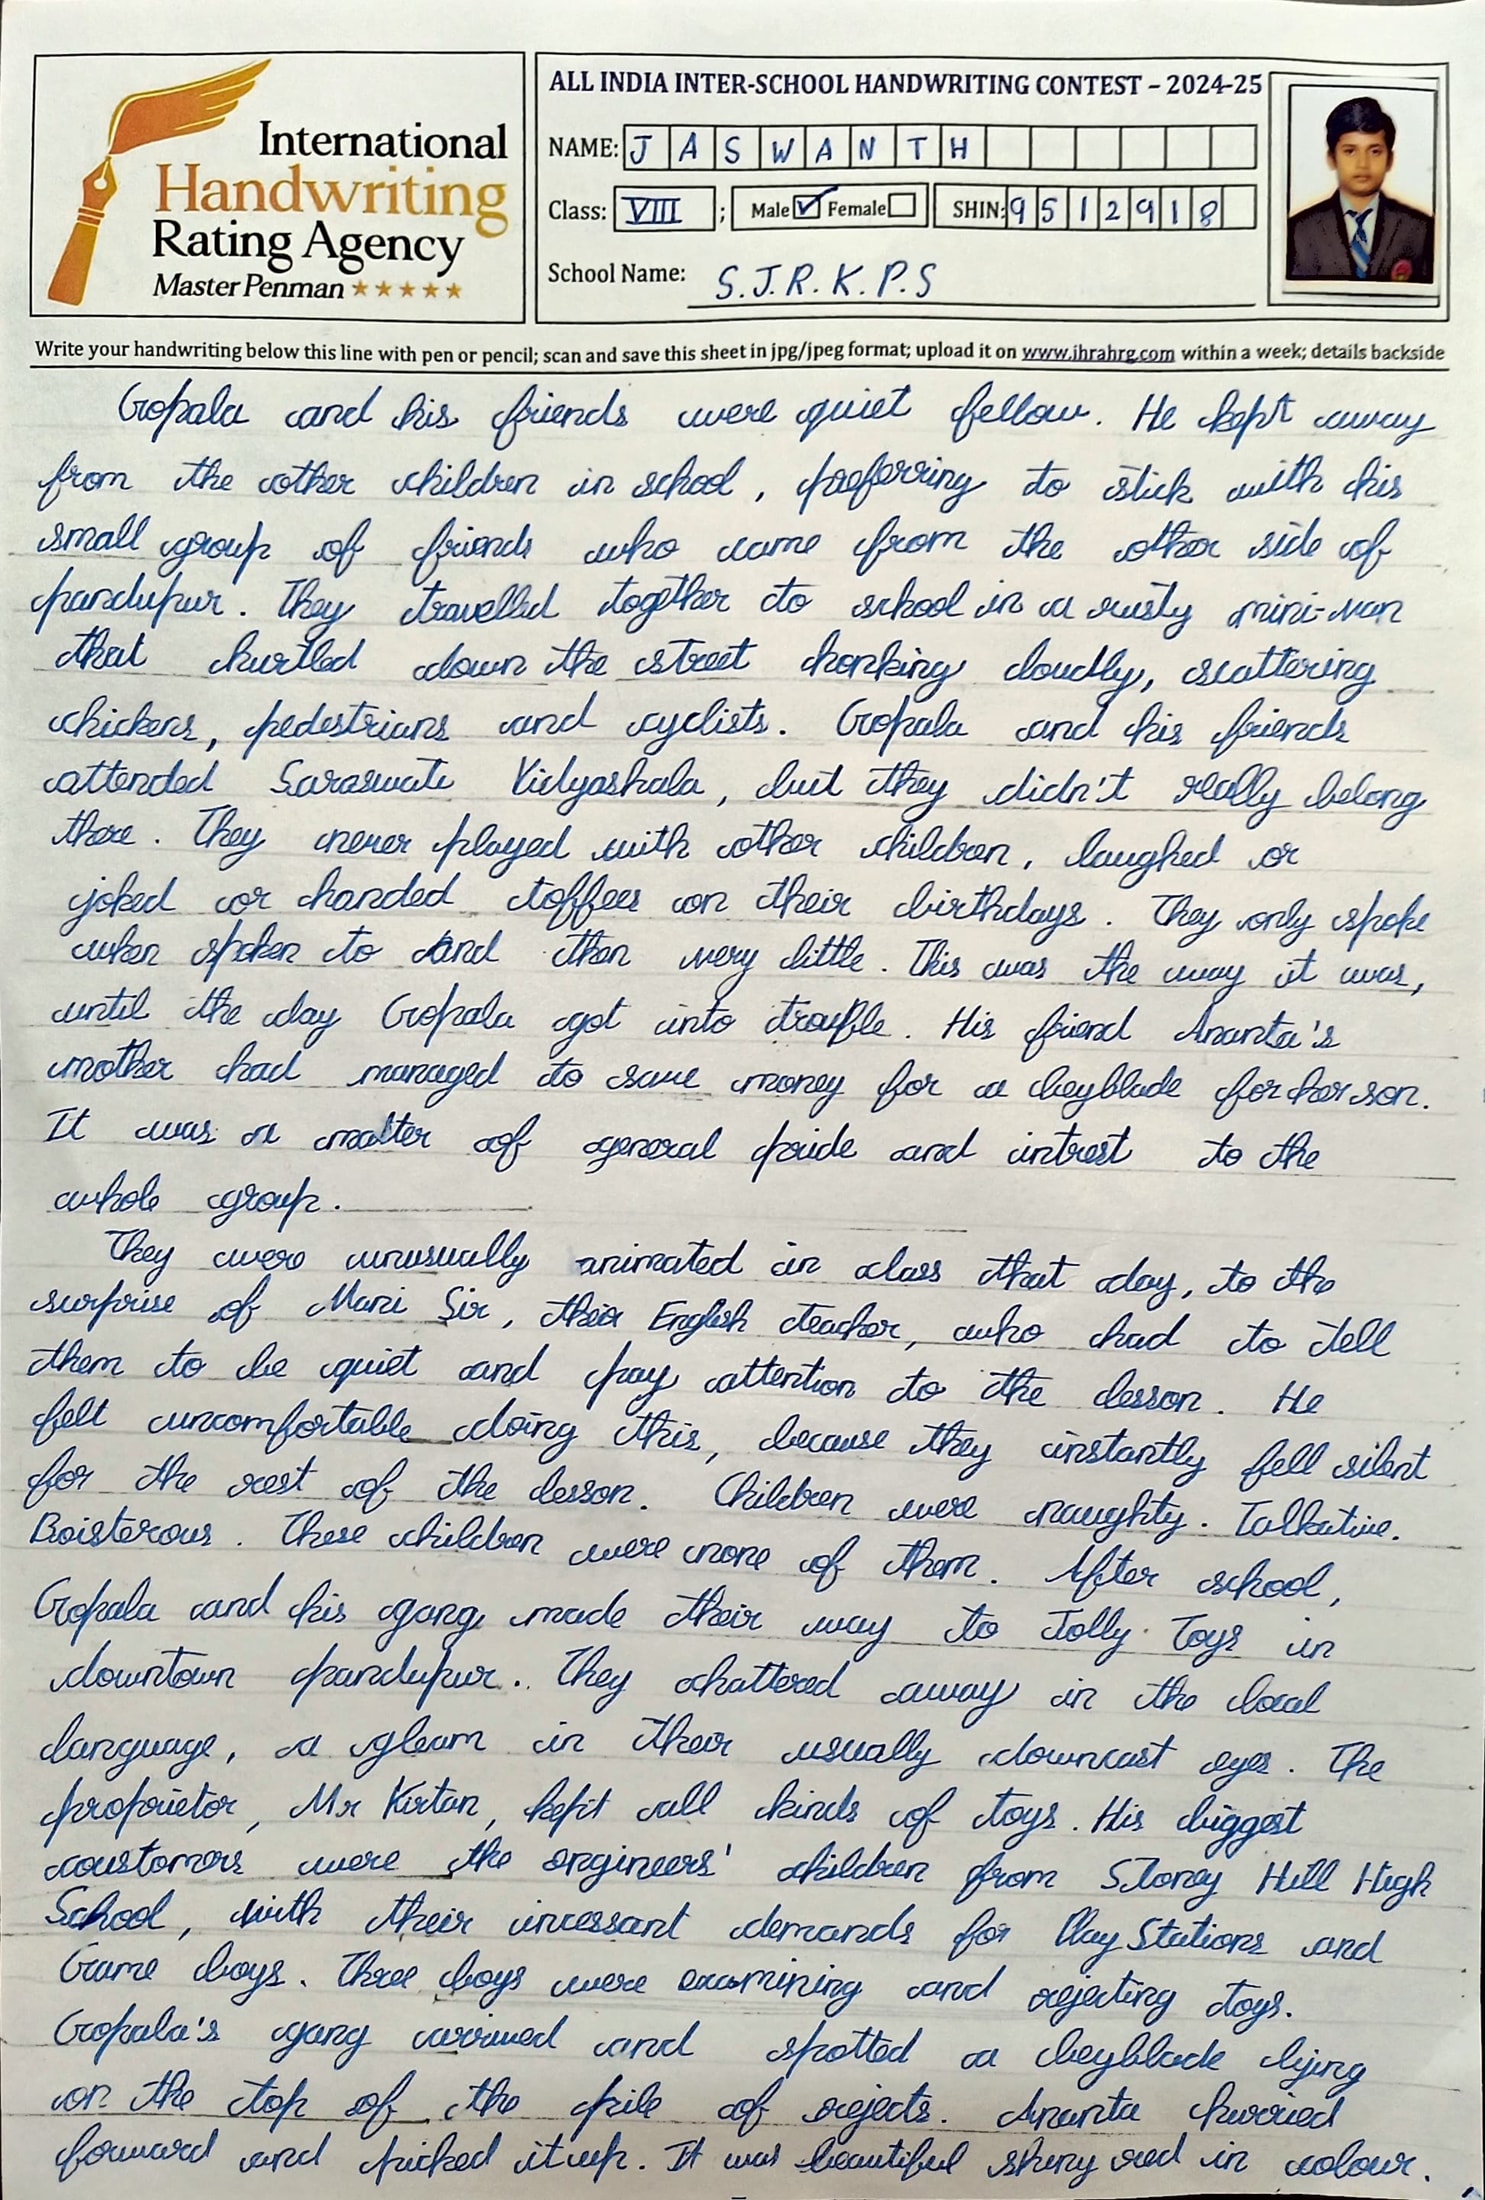 International
Handwriting
Rating Agency
Master Penman
ALL INDIA INTER-SCHOOL HANDWRITING CONTEST – 2024-25
NAME: JASWANTH
Class: VIII ; Male ☑ Female ☐ SHIN: 9512918
School Name: S.J.R.K.P.S
Write your handwriting below this line with pen or pencil; scan and save this sheet in jpg/jpeg format; upload it on www.ihrahrg.com within a week; details backside
Gopala and his friends were quiet fellow. He kept away
from the other children in school, preferring to stick with his
small group of friends who came from the other side of
pandupur. They travelled together to school in a rusty mini-van
that hurtled down the street honking loudly, scattering
chickens, pedestrians and cyclists. Gopala and his friends
attended Saraswati Vidyashala, but they didn't really belong
there. They never played with other children, laughed or
joked or handed toffees on their birthdays. They only spoke
when spoken to and then very little. This was the way it was,
until the day Gopala got into trouble. His friend Ananta's
mother had managed to save money for a beyblade for her son.
It was a matter of general pride and intrest to the
whole group.
They were unusually animated in class that day, to the
surprise of Mani Sir, their English teacher, who had to tell
them to be quiet and pay attention to the lesson. He
felt uncomfortable doing this, because they instantly fell silent
for the rest of the lesson. Children were naughty. Talkative.
Boisterous. These children were none of them. After school,
Gopala and his gang made their way to Jolly Toys in
downtown pandupur. They chattered away in the local
language, a gleam in their usually downcast eyes. The
proprietor, Mr Kirtan, kept all kinds of toys. His biggest
coustomers were the engineers' children from Stoney Hill High
School, with their incessant demands for Play Stations and
Game boys. Three boys were examining and rejecting toys.
Gopala's gang arrived and spotted a beyblade lying
on the top of the pile of rejects. Ananta hurried
forward and picked it up. It was beautiful shiny red in colour.